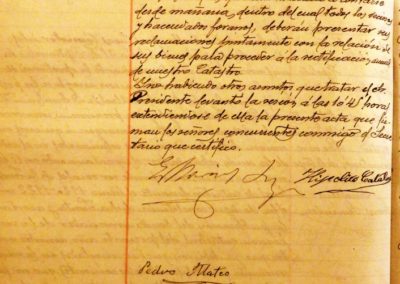 desde mañana, dentro del cual todos los vecinos
y hacendados foranos, deberán presentar sus
reclamaciones juntamente con la relación de
sus bienes para proceder á la rectificación
de nuestro Catastro.
Y no habiendo otros asuntos que tratar el Sr.
Presidente levantó la sesión á las 10'45 horas
extendiendose de ella la presente acta que fir-
man los señores concurrentes conmigo el Secre-
tario que certifico.
Hipolito Catalán
Pedro Mateo